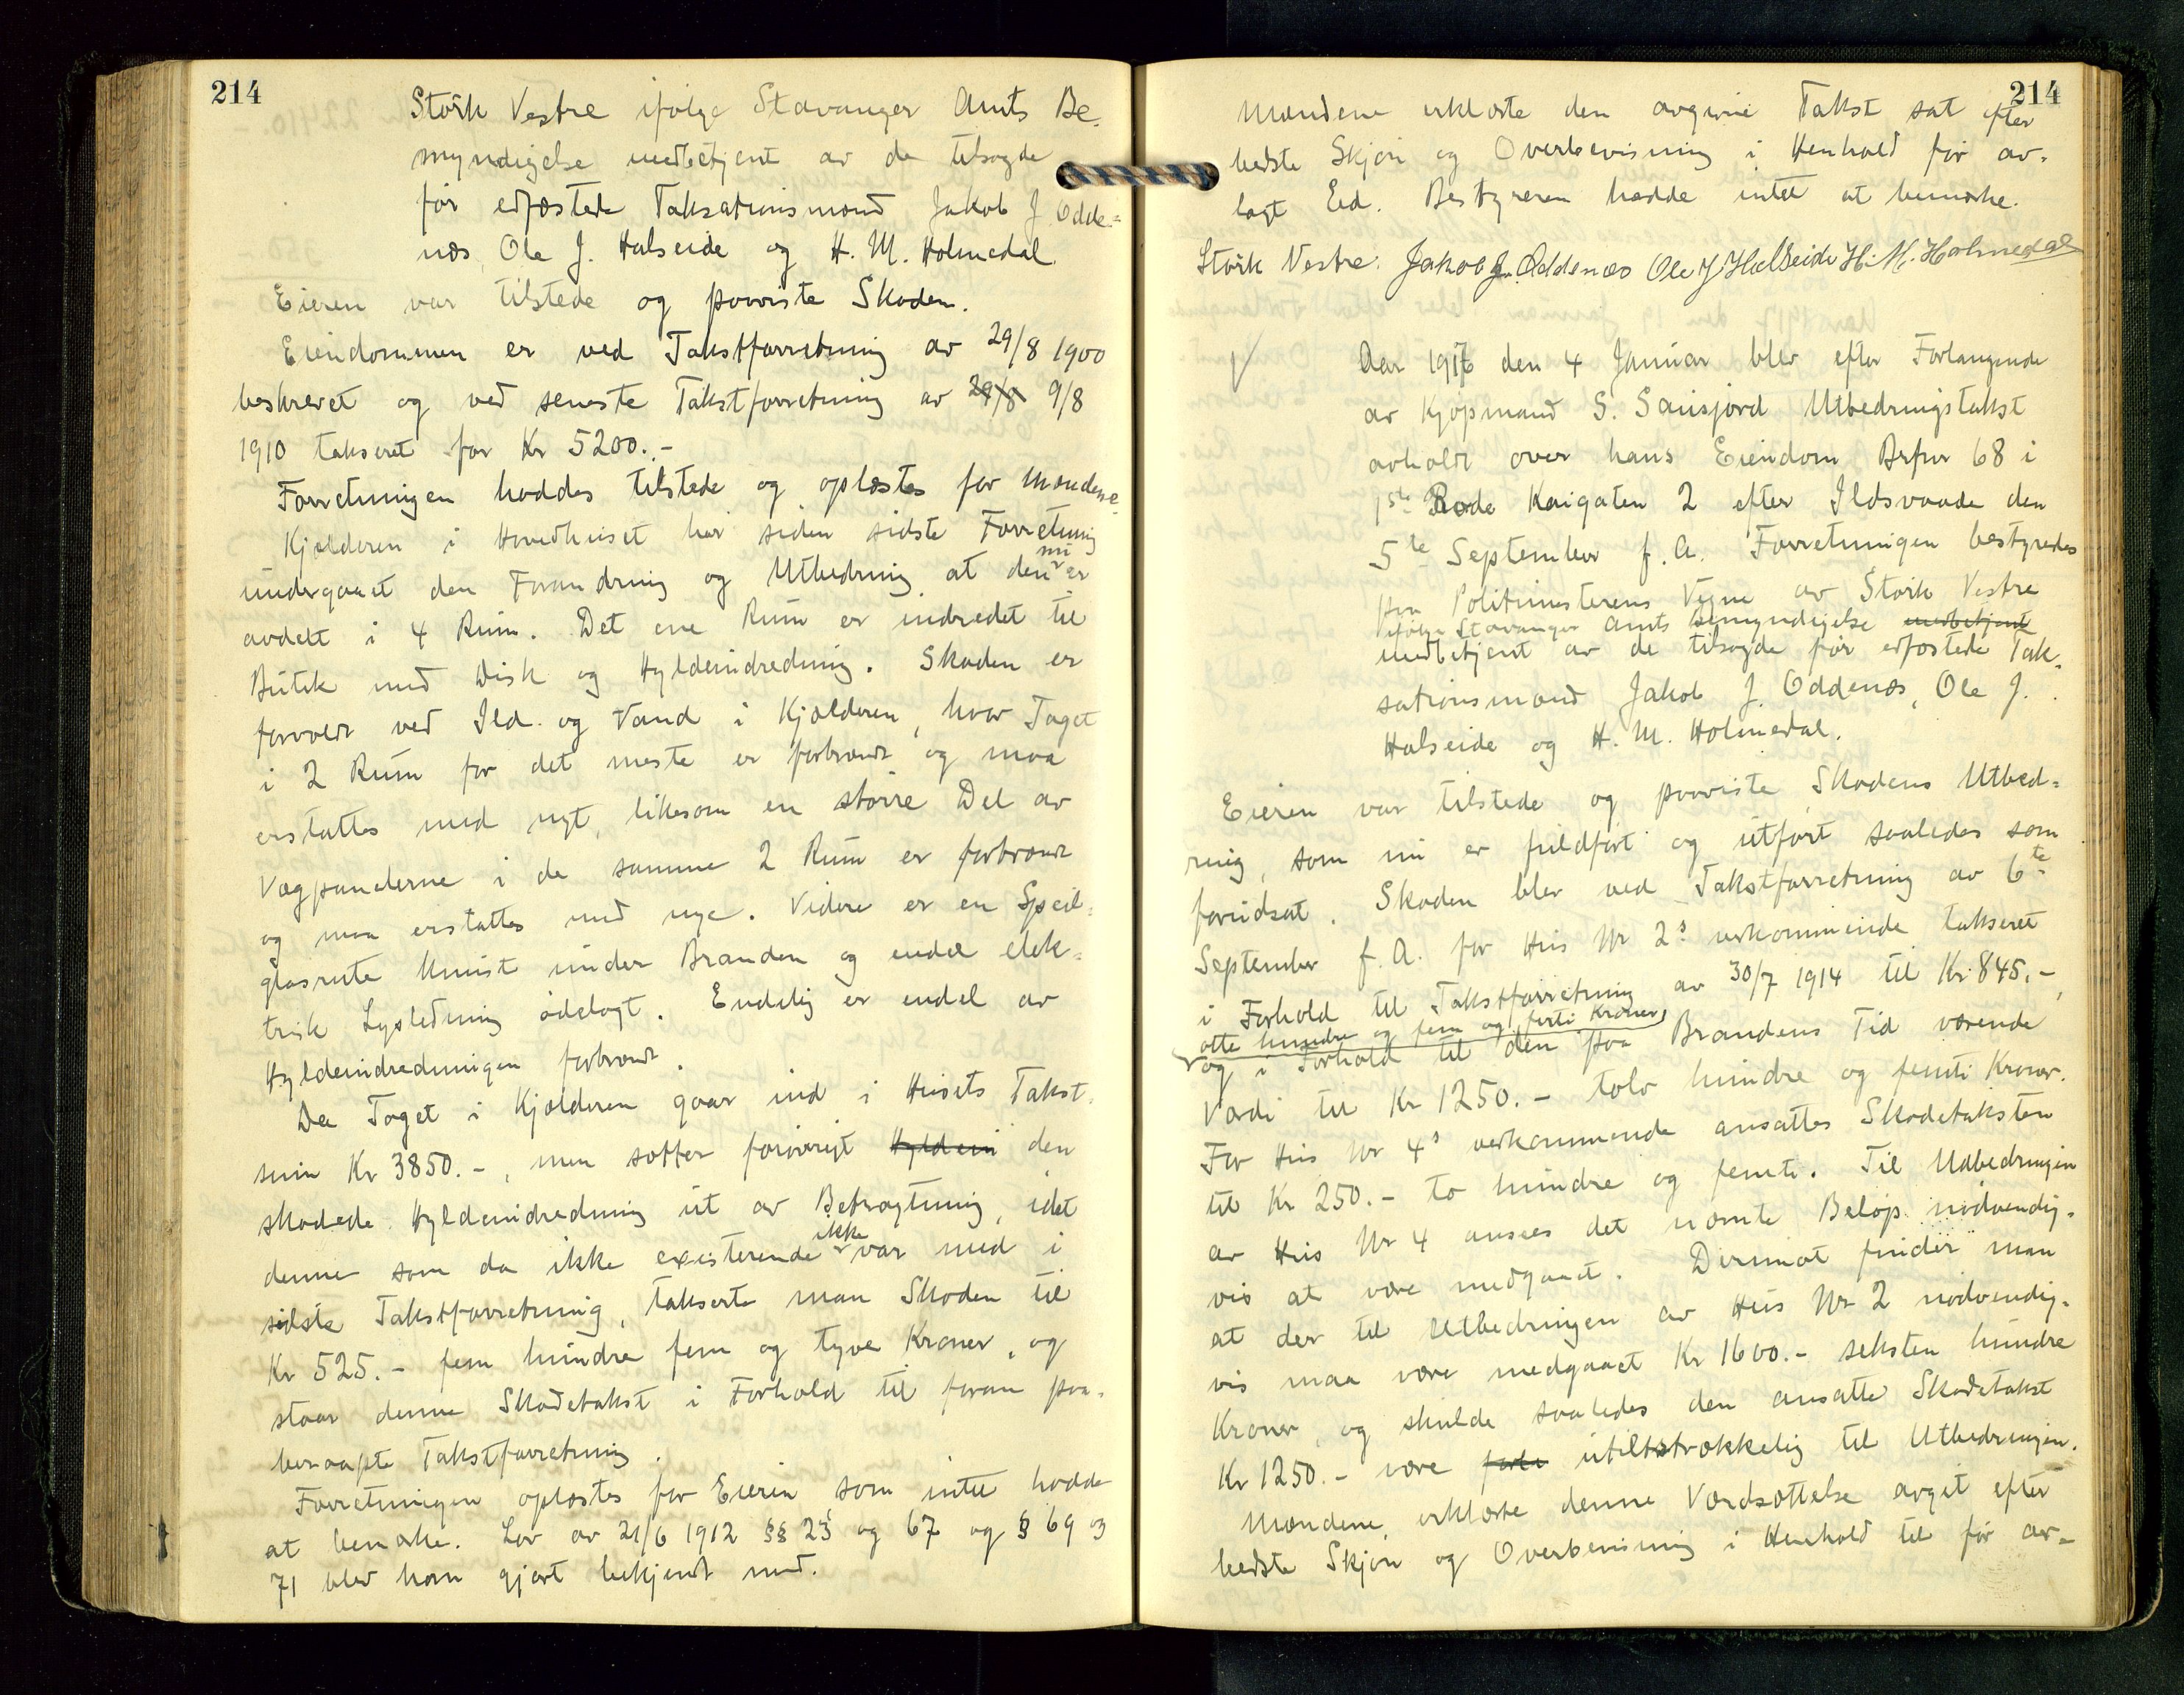 214
Størk Vestre ifølge Stavanger Amts Be-
myndigelse medbetjent av de tilsagde
før edfæstede Taksationsmænd Jakob J. Odde-
næs, Ole J. Halseide og H. M. Holmedal.
Eieren var tilstede og paaviste Skaden.
Eiendommen er ved Takstforretning av 29/8 1900
beskrevet og ved seneste Takstforretning av 29/8 9/8
1910 takseret for Kr 5200.-
Forretningen haddes tilstede og oplæstes for Mændene.
Kjælderen i Hovedhuset har siden sidste Forretning
undergaaet den Forandring og Utbedring at den nu er
avdelt i 4 Rum. Det ene Rum er indredet til
Butik med Disk og Hyldeindredning. Skaden er
forvoldt ved Ild og Vand i Kjælderen, hvor Taget
i 2 Rum for det meste er forbrændt og maa
erstattes med nyt, likesom en større Del av
Vægpanelerne i de samme 2 Rum er forbrændt
og maa erstattes med nye. Videre er en Speil-
glasrute knust under Branden og endel elek-
trisk Lysledning ødelagt. Endelig er endel av
Hyldeindredningen forbrændt.
Da Taget i Kjælderen gaar ind i Husets Takst-
sum Kr 3850.-, men sætter forøvrigt Hyldein den
skadede Hyldeindredning ut av Betragtning, idet
denne som da ikke existerende ikke var med i
sidste Takstforretning, takserte man Skaden til
Kr 525.- fem hundre fem og tyve Kroner, og
staar denne Skadetakst i Forhold til foran paa-
beraapte Takstforretning.
Forretningen oplæstes for Eieren som intet hadde
at bemærke. Lov av 21/6 1912 §§ 23 og 67 og § 69 og
71 blev ham gjort bekjendt med.
214
Mændene erklærte den avgivne Takst sat efter
bedste Skjøn og Overbevisning i Henhold før av-
lagt Ed. Bestyreren hadde intet at bemærke.
Størk Vestre. Jakob J. Oddenæs Ole J Halseide H. M. Holmedal
Aar 1917 den 4 Januar blev efter Forlangende
av Kjøpmand S. Sausjord Utbedringstakst
avholdt over hans Eiendom Brfnr 68 i
1ste Rode Kaigaten 2 efter Ildsvaade den
5te September f. A. Forretningen bestyredes
paa Politimesterens Vegne av Størk Vestre
ifølge Stavanger Amts Bemyndigelse medbetjent
medbetjent av de tilsagde før edfæstede Tak-
sationsmænd Jakob J. Oddenæs, Ole J.
Halseide og H. M. Holmedal.
Eieren var tilstede og paaviste Skadens Utbed-
ring, som nu er fuldført og utført saaledes som
forudsat. Skaden blev ved Takstforretning av 6te
September f. A. for Hus Nr 2s vedkommende takseret
i Forhold til Takstforretning av 30/7 1914 til Kr. 845.-,
otte hundre og fem og forti Kroner,
og i Forhold til den paa Brandens Tid værende
Værdi til Kr 1250.- tolv hundre og femti Kroner.
For Hus Nr 4s vedkommende ansattes Skadetaksten
til Kr 250.- to hundre og femti. Til Utbedringen
av Hus Nr 4 ansees det nævnte Beløp nødvendig-
vis at være medgaaet. Derimot finder man
at der til Utbedringen av Hus Nr 2 nødvendig-
vis maa være medgaaet Kr 1600.- seksten hundre
Kroner, og skulde saaledes den ansatte Skadetakst
Kr 1250.- være utilstrækkelig til Utbedringen.
Mændene erklærte denne Værdsættelse avgit efter
bedste Skjøn og Overbevisning i Henhold til før av-